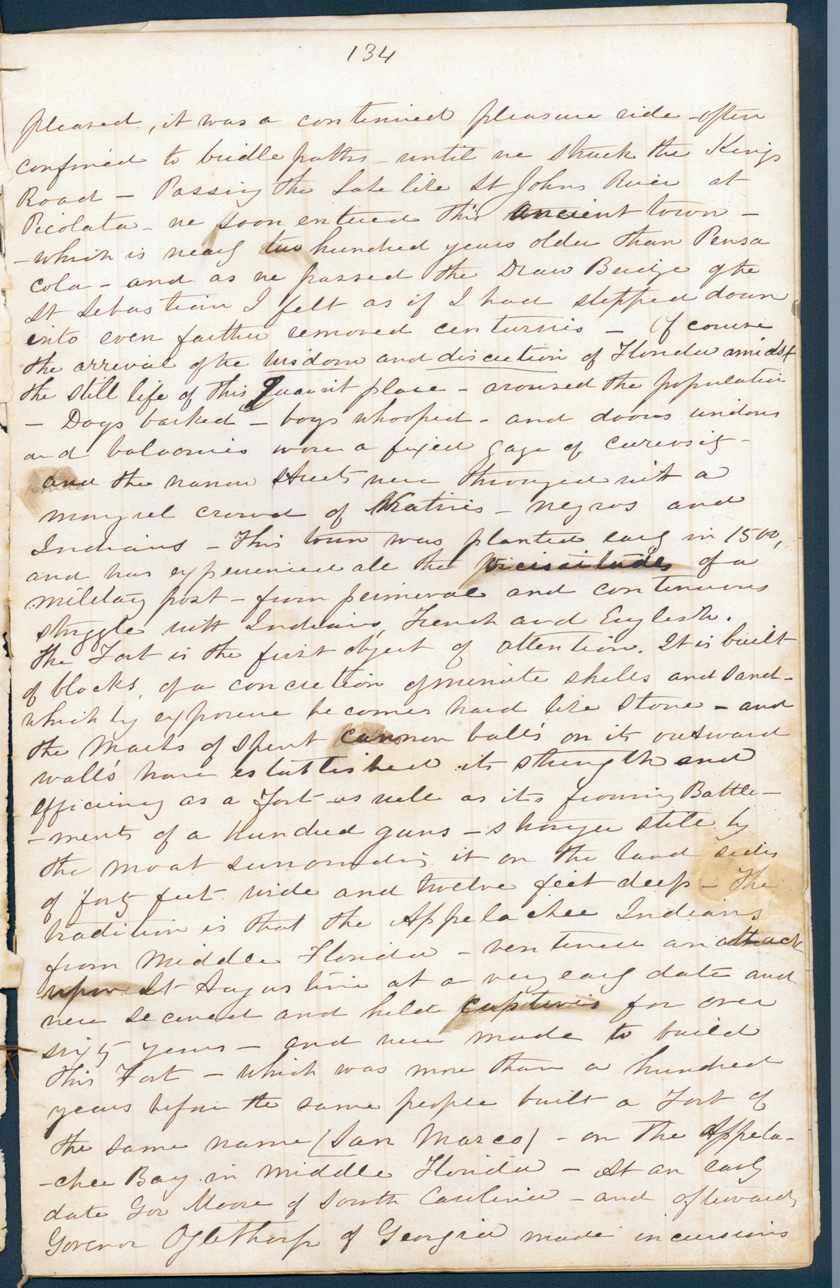 134
pleased, it was a continued pleasure ride - often
confined to bridle paths - until we struck the Kings
Road - Passing the Lake like St Johns River at
Picolata - we soon entered this ancient town -
- which is nearly two hundred years older than Pensa
cola - and as we passed the Draw Bridge of the
St Sebastian I felt as if I had stepped down
into even farther removed centuries - Of course
the arrival of the wisdom and discretion of Florida amidst
the still life of this Quaint place - aroused the population
- Dogs barked - boys whooped - and doors windows
and balconies wore a fixed gaze of curiosity -
and the narrow streets were thronged with a
mongrel crowd of Natives - negros and
Indians - This town was planted early in 1500,
and has experienced all the vicissitudes of a
military post - from primeval and continuous
struggle with Indians, French and English.
The Fort is the first object of attention. It is built
of blocks, of a concretion of minute shells and sand -
which by exposure becomes hard like stone - and
the Marks of spent cannon balls on its outward
walls have established its strength and
efficiency as a Fort as well as its frowning Battle-
-ments of a hundred guns - stronger still by
the moat surrounding it on the land sides
of forty feet wide and twelve feet deep - The
tradition is that the Appelachee Indians
from Middle Florida - ventured an attack
upon St Augustine at a very early date and
were secured and held captives for over
sixty years - and were made to build
this Fort - which was more than a hundred
years before the same people built a Fort of
the same name (San Marco) - on the Appela-
-chee Bay in Middle Florida - At an early
date Gov Moore of South Carolina - and afterwards
Govenor Oglethorp of Georgia made incursions